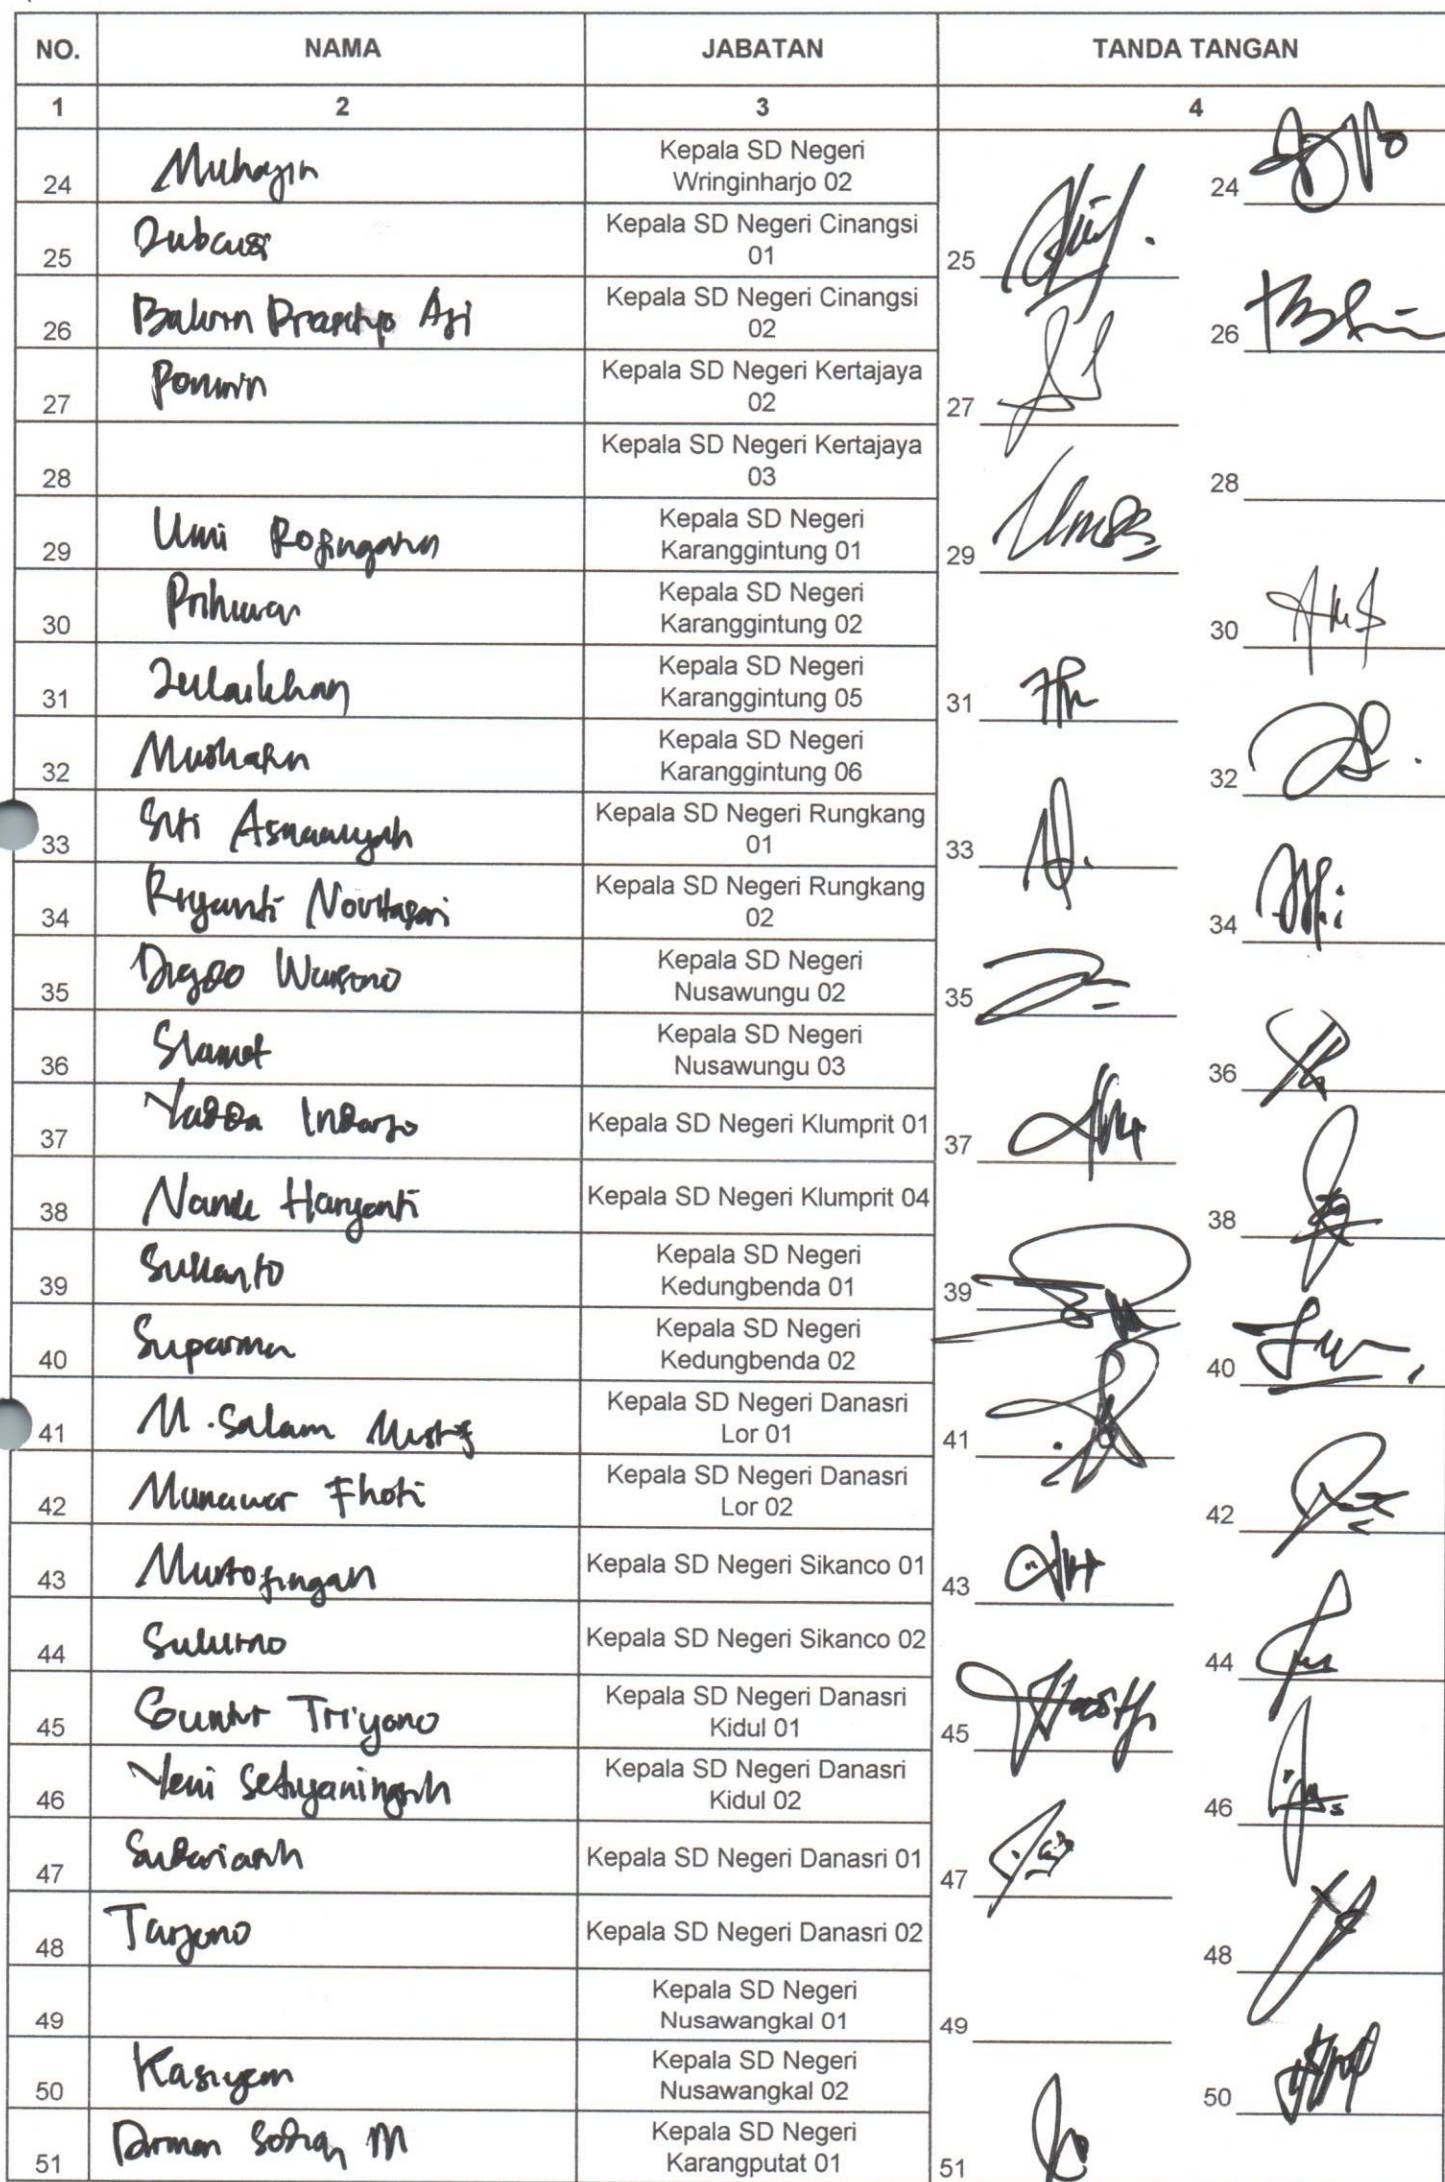 NO. NAMA JABATAN TANDA TANGAN
1 2 3 4
24 Muhayin Kepala SD Negeri
Wringinharjo 02 24
25 Kepala SD Negeri Cinangsi
01 25
26 Prasetyo Aji Kepala SD Negeri Cinangsi
02 26
27 Ponimin Kepala SD Negeri Kertajaya
02 27
28 Kepala SD Negeri Kertajaya
03 28
29 Umi Rofingatun Kepala SD Negeri
Karanggintung 01 29
30 Prihawan Kepala SD Negeri
Karanggintung 02 30
31 Zulaikhah Kepala SD Negeri
Karanggintung 05 31
32 Kepala SD Negeri
Karanggintung 06 32
33 Siti Kepala SD Negeri Rungkang
01 33
34 Riyanti Novitasari Kepala SD Negeri Rungkang
02 34
35 Kepala SD Negeri
Nusawungu 02 35
36 Slamet Kepala SD Negeri
Nusawungu 03 36
37 Indarjo Kepala SD Negeri Klumprit 01 37
38 Haryanti Kepala SD Negeri Klumprit 04 38
39 Sukanto Kepala SD Negeri
Kedungbenda 01 39
40 Suparman Kepala SD Negeri
Kedungbenda 02 40
41 M. Salam Kepala SD Negeri Danasri
Lor 01 41
42 Munawar Fhoti Kepala SD Negeri Danasri
Lor 02 42
43 Murtofingan Kepala SD Negeri Sikanco 01 43
44 Kepala SD Negeri Sikanco 02 44
45 Guntur Triyono Kepala SD Negeri Danasri
Kidul 01 45
46 Yeni Setiyaningsih Kepala SD Negeri Danasri
Kidul 02 46
47 Sudariasih Kepala SD Negeri Danasri 01 47
48 Tarjono Kepala SD Negeri Danasri 02 48
49 Kepala SD Negeri
Nusawangkal 01 49
50 Kasiyem Kepala SD Negeri
Nusawangkal 02 50
51 M Kepala SD Negeri
Karangputat 01 51